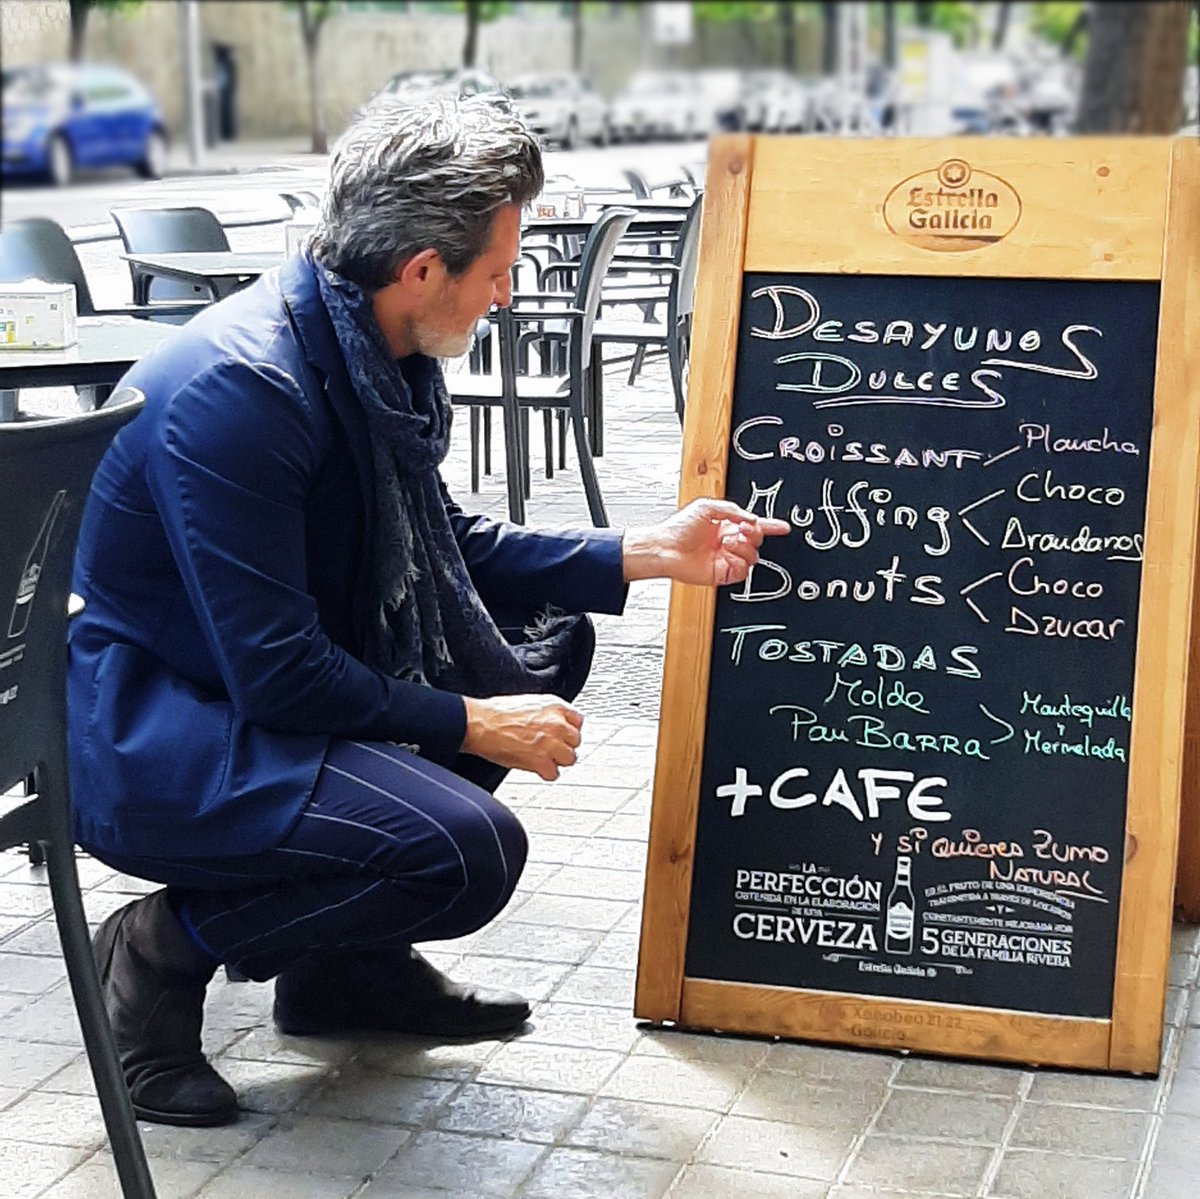 Estrella
Galicia
DESAYUNOS
DULCES
CROISSANT Plancha
Muffing Choco
Arandanos
Donuts Choco
Azucar
TOSTADAS
Molde
Pan BARRA
Mantequilla
y
Mermelada
+CAFE
Y Si quieres Zumo
NATURAL
LA
PERFECCIÓN
OBTENIDA EN LA ELABORACION
DE UNA
CERVEZA
ES EL FRUTO DE UNA EXPERIENCIA
TRANSMITIDA A TRAVÉS DE LOS AÑOS
Y
CONSTANTEMENTE MEJORADA POR
5 GENERACIONES
DE LA FAMILIA RIVERA
Estrella Galicia
Xacobeo 21·22